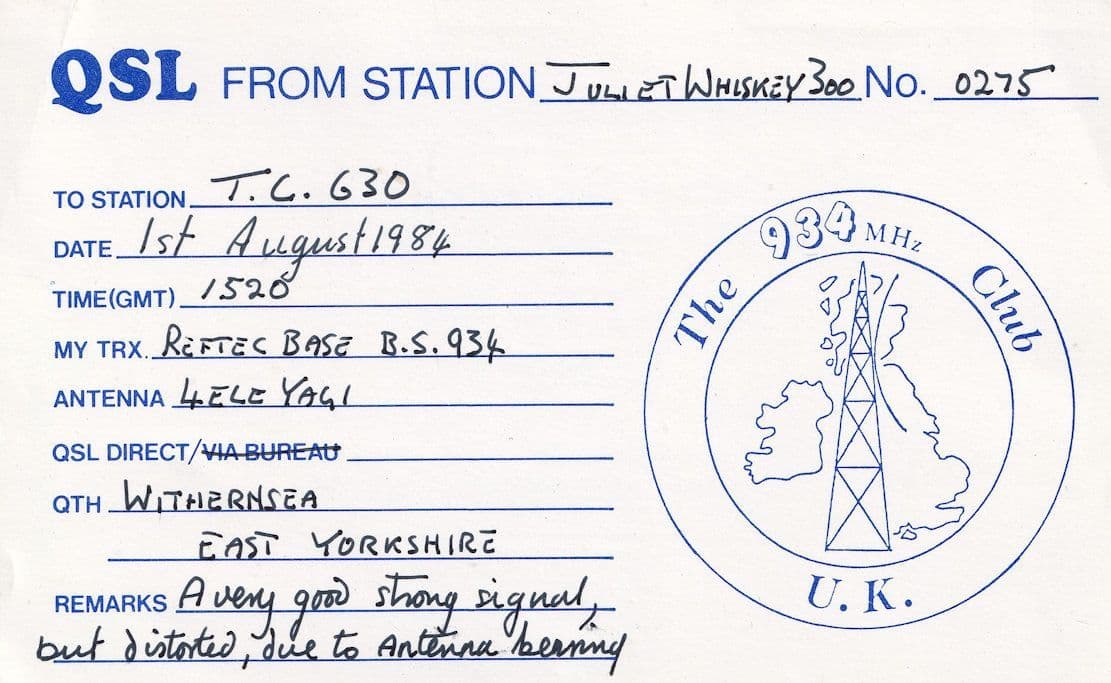 QSL FROM STATION JULIET WHISKEY 300 No. 0275
TO STATION T.C. 630
DATE 1st August 1984
TIME(GMT) 1520
MY TRX. REFTEC BASE B.S. 934
ANTENNA 4 ELE YAGI
QSL DIRECT/VIA BUREAU
QTH WITHERNSEA
EAST YORKSHIRE
REMARKS A very good strong signal,
but distorted, due to Antenna bearing
The 934 MHz Club
U.K.